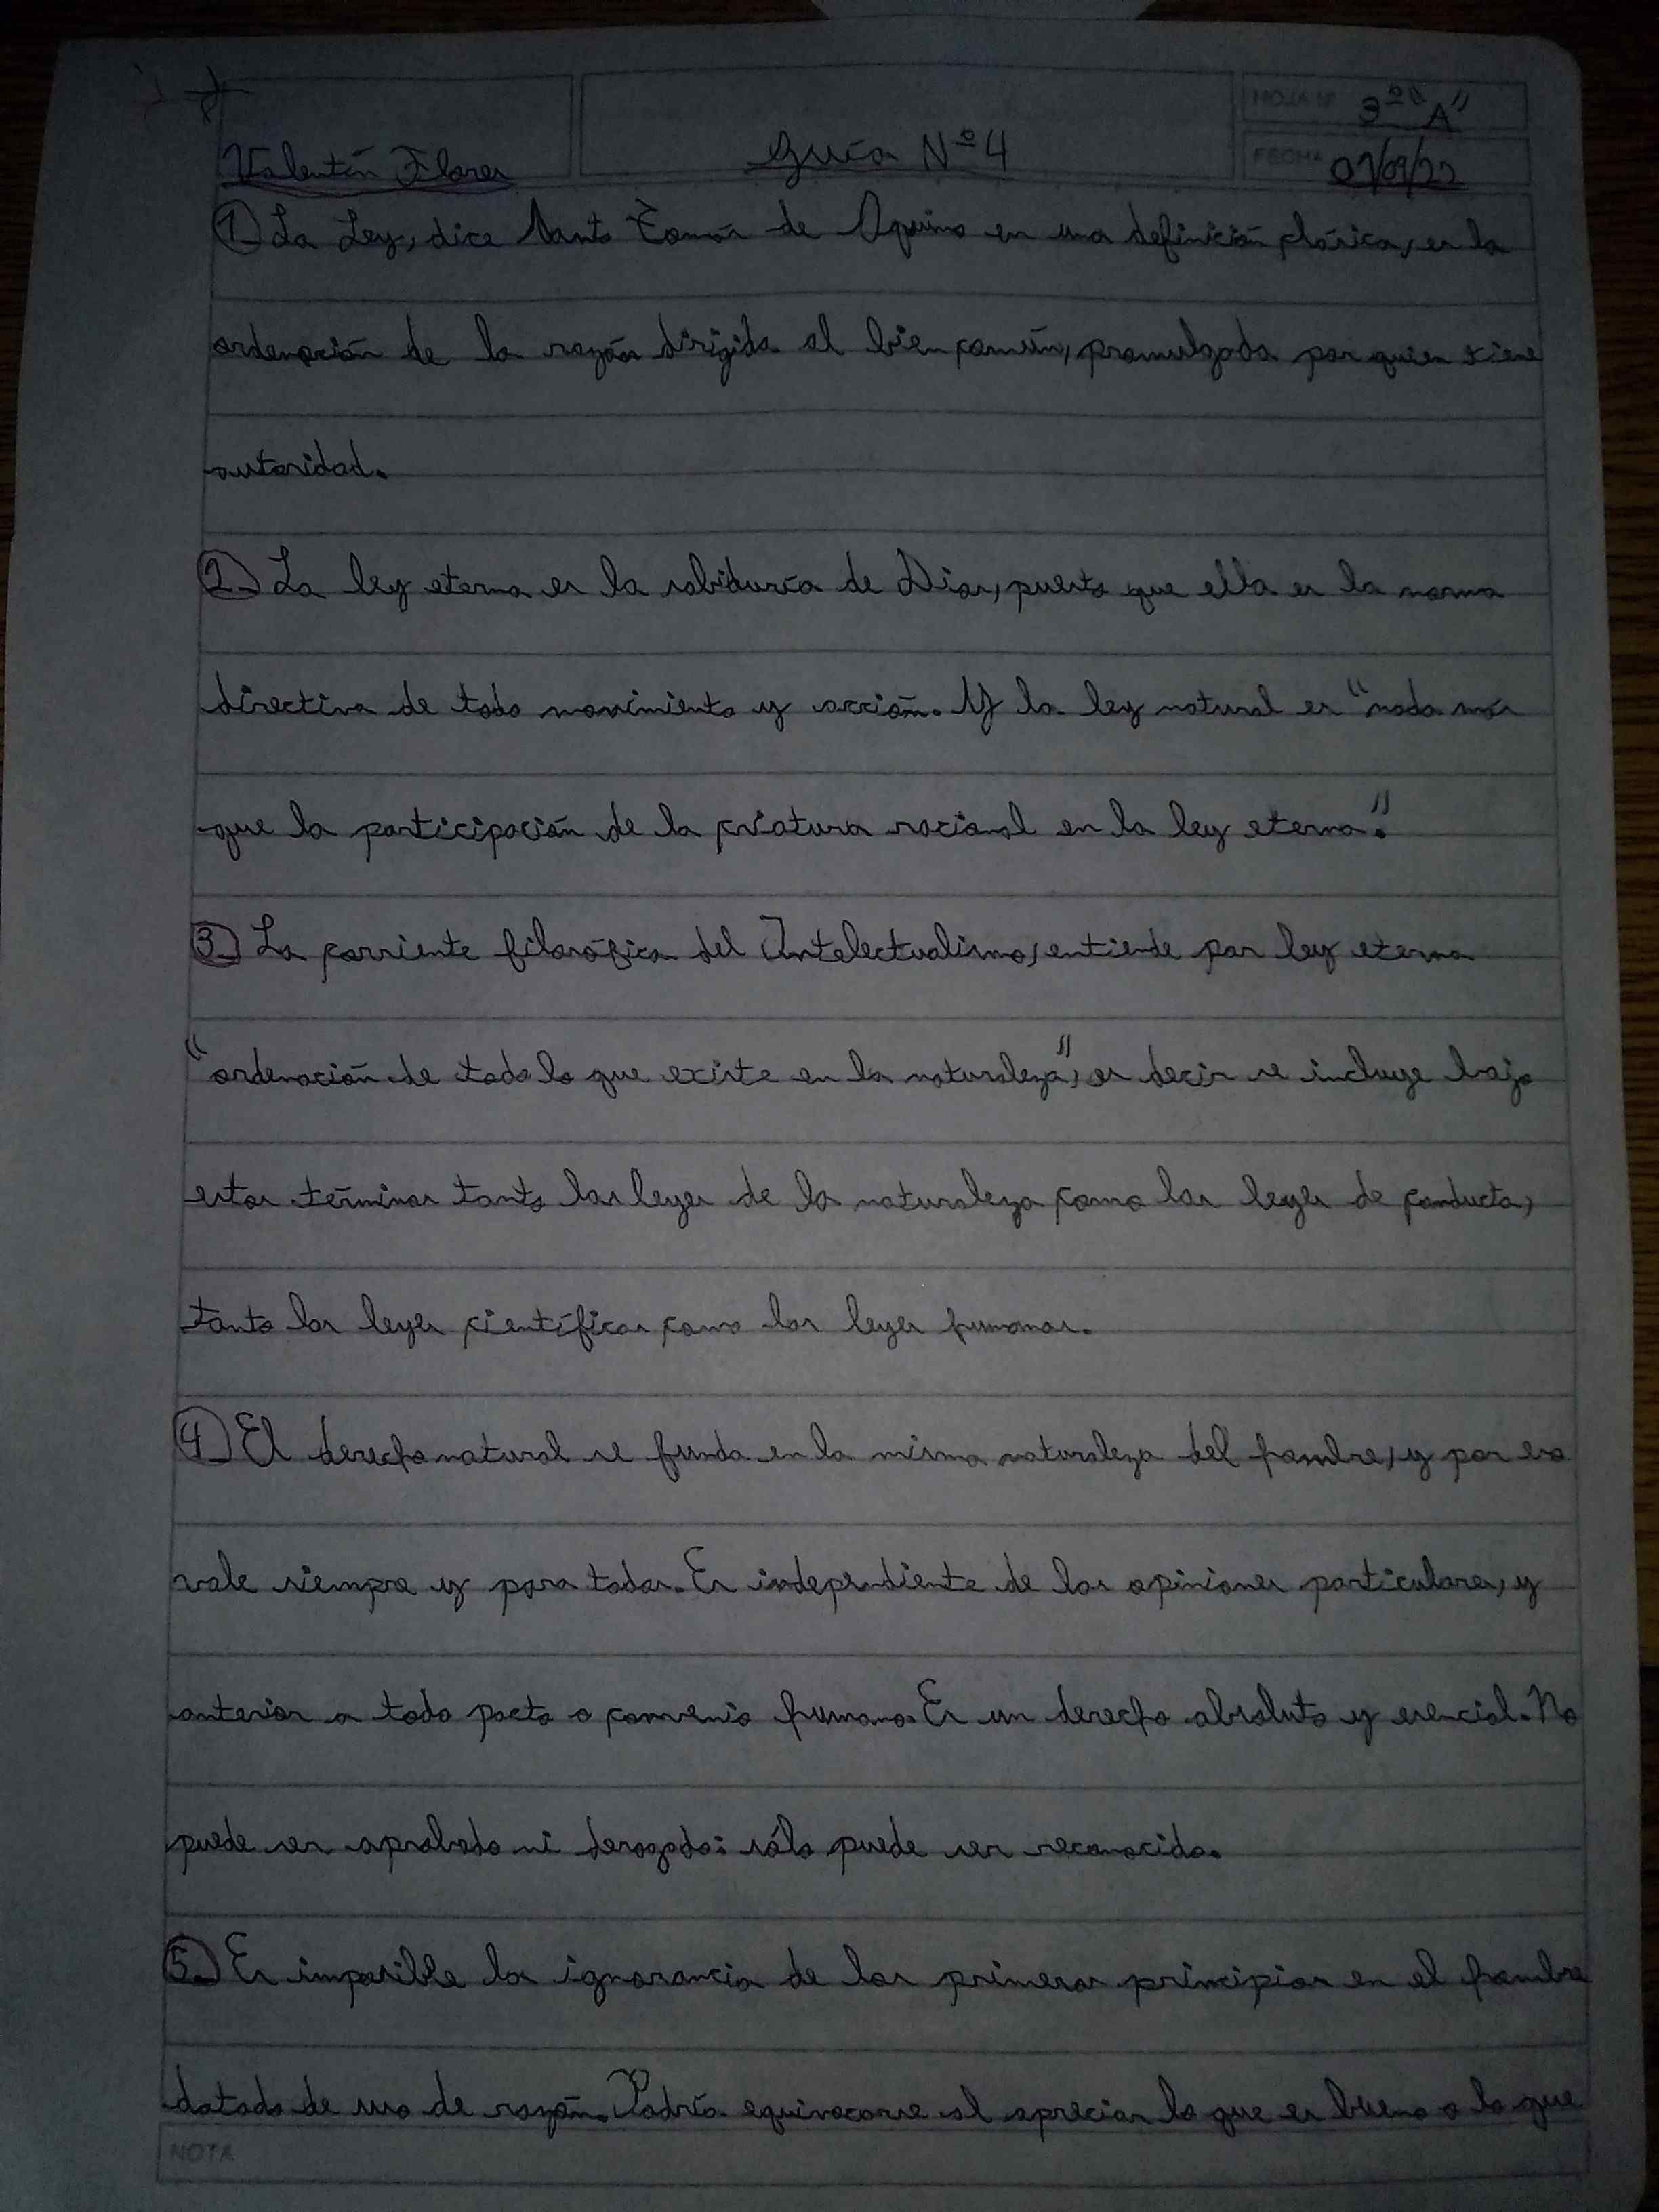 HOJA Nº 3ro "A"
Valentín Flores Guía Nº4 FECHA 07/09/22
1. La Ley, dice Santo Tomás de Aquino en una definición clásica, es la
ordenación de la razón dirigida al bien común, promulgada por quien tiene
autoridad.
2. La ley eterna es la sabiduría de Dios, puesto que ella es la norma
directiva de todo movimiento y acción. Y la ley natural es "nada más
que la participación de la criatura racional en la ley eterna".
3. La corriente filosófica del Intelectualismo, entiende por ley eterna
"ordenación de todo lo que existe en la naturaleza", es decir se incluye bajo
estos términos tanto las leyes de la naturaleza como las leyes de conducta,
tanto las leyes científicas como las leyes humanas.
4. El derecho natural se funda en la misma naturaleza del hombre, y por eso
vale siempre y para todos. Es independiente de las opiniones particulares, y
anterior a todo pacto o convenio humano. Es un derecho absoluto y esencial. No
puede ser aprobado ni derogado: sólo puede ser reconocido.
5. Es imposible la ignorancia de los primeros principios en el hombre
dotado de uso de razón. Podría equivocarse al apreciar lo que es bueno o lo que
NOTA